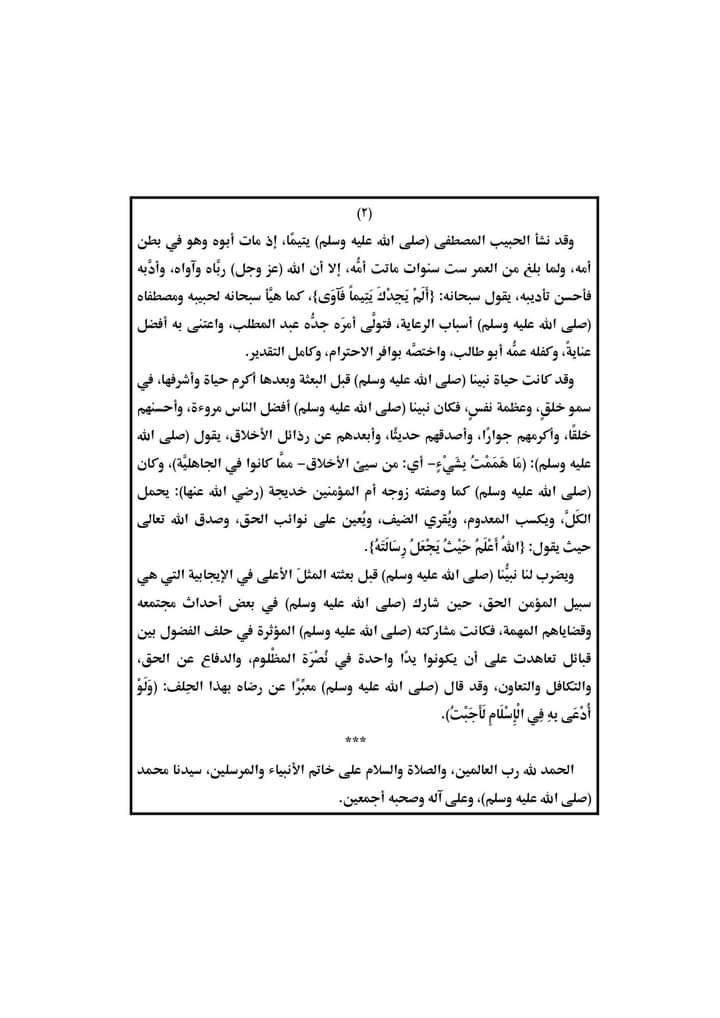 (٢)
وقد نشأ الحبيب المصطفى (صلى الله عليه وسلم) يتيمًا، إذ مات أبوه وهو في بطن
أمه، ولما بلغ من العمر ست سنوات ماتت أمُّه، إلا أن الله (عز وجل) ربَّاه وآواه، وأدَّبه
فأحسن تأديبه، يقول سبحانه: {أَلَمْ يَجِدْكَ يَتِيماً فَآوَى}، كما هيَّأ سبحانه لحبيبه ومصطفاه
(صلى الله عليه وسلم) أسباب الرعاية، فتولَّى أمرَه جدُّه عبد المطلب، واعتنى به أفضل
عنايةً، وكفله عمُّه أبو طالب، واختصَّه بوافر الاحترام، وكامل التقدير.
وقد كانت حياة نبينا (صلى الله عليه وسلم) قبل البعثة وبعدها أكرم حياة وأشرفها، في
سمو خلقٍ، وعظمة نفسٍ، فكان نبينا (صلى الله عليه وسلم) أفضل الناس مروءة، وأحسنهم
خلقًا، وأكرمهم جوارًا، وأصدقهم حديثًا، وأبعدهم عن رذائل الأخلاق، يقول (صلى الله
عليه وسلم): (مَا هَمَمْتُ بِشَيْءٍ- أي: من سيئ الأخلاق- ممَّا كانوا في الجاهليَّة)، وكان
(صلى الله عليه وسلم) كما وصفته زوجه أم المؤمنين خديجة (رضي الله عنها): يحمل
الكَلَّ، ويكسب المعدوم، ويُقري الضيف، ويُعين على نوائب الحق، وصدق الله تعالى
حيث يقول: {اللهُ أَعْلَمُ حَيْثُ يَجْعَلُ رِسَالَتَهُ}.
ويضرب لنا نبيُّنا (صلى الله عليه وسلم) قبل بعثته المثلَ الأعلى في الإيجابية التي هي
سبيل المؤمن الحق، حين شارك (صلى الله عليه وسلم) في بعض أحداث مجتمعه
وقضاياهم المهمة، فكانت مشاركته (صلى الله عليه وسلم) المؤثرة في حلف الفضول بين
قبائل تعاهدت على أن يكونوا يدًا واحدة في نُصْرَة المظْلوم، والدفاع عن الحق،
والتكافل والتعاون، وقد قال (صلى الله عليه وسلم) معبِّرًا عن رضاه بهذا الحِلف: (وَلَوْ
أُدْعَى بِهِ فِي الْإِسْلَامِ لَأَجَبْتُ).
***
الحمد لله رب العالمين، والصلاة والسلام على خاتم الأنبياء والمرسلين، سيدنا محمد
(صلى الله عليه وسلم)، وعلى آله وصحبه أجمعين.